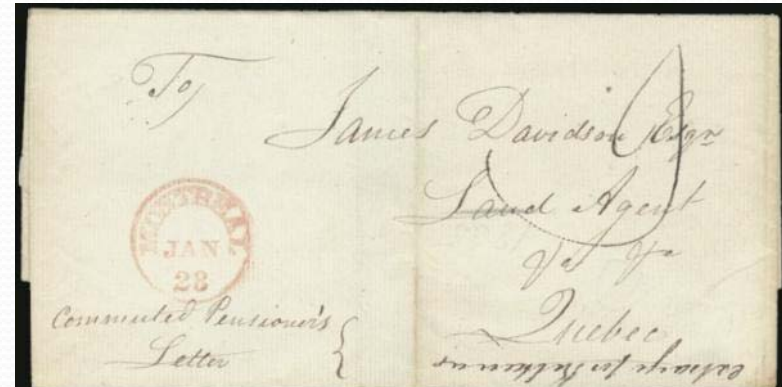 To
James Davidson Esqr
Land Agent
&c &c
Quebec
MONTREAL
JAN
28
Commuted Pensioner's
Letter
9